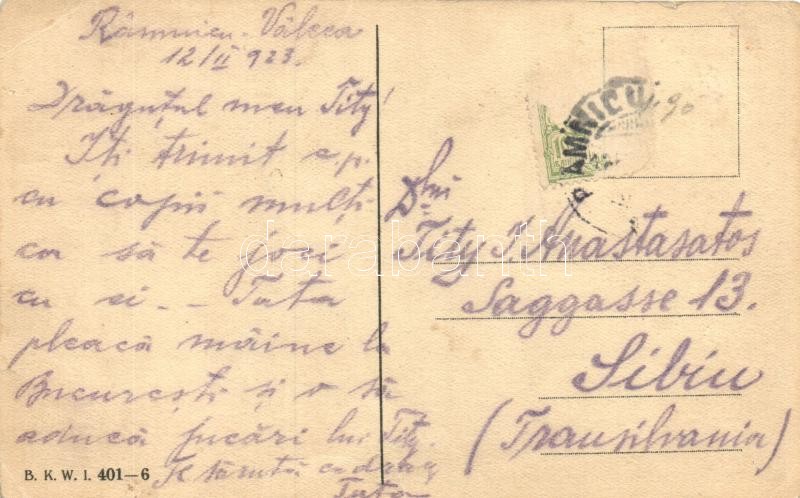 Râmnicu-Vâlcea
12/II 923.
Drăguțul meu Tity!
Iți trimit c.p.
cu copii mulți
ca să te joci
cu ei. - Tata
pleacă mâine la
București și o să
aducă jucării lui Tity.
Te sărută cu drag
Tata
B. K. W. I. 401–6
RÂMNICU
90
Dlui
Tity I. Anastasatos
Saggasse 13.
Sibiu
(Transilvania)
darabanth